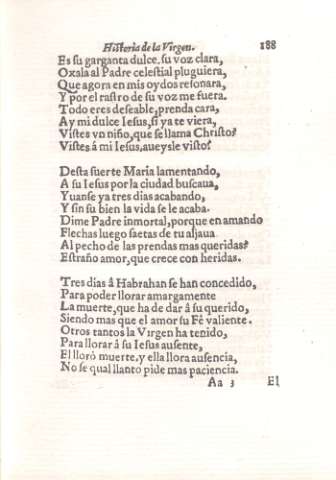 Historia de la Virgen. 188
Es su garganta dulce, su voz clara,
Oxala al Padre celestial pluguiera,
Que agora en mis oydos resonara,
Y por el rastro de su voz me fuera.
Todo eres deseable, prenda cara,
Ay mi dulce Iesus, si ya te viera,
Vistes vn niño, que se llama Christo?
Vistes á mi Iesus, aueysle visto?
Desta suerte Maria lamentando,
A su Iesus por la ciudad buscaua,
Yuanse ya tres dias acabando,
Y sin su bien la vida se le acaba.
Dime Padre inmortal, porque en amando
Flechas luego saetas de tu aljaua
Al pecho de las prendas mas queridas?
Estraño amor, que crece con heridas.
Tres dias â Habrahan se han concedido,
Para poder llorar amargamente
La muerte, que ha de dar â su querido,
Siendo mas que el amor su Fè valiente.
Otros tantos la Virgen ha tenido,
Para llorar â su Iesus ausente,
El llorò muerte, y ella llora ausencia,
No se qual llanto pide mas paciencia.
Aa 3 El